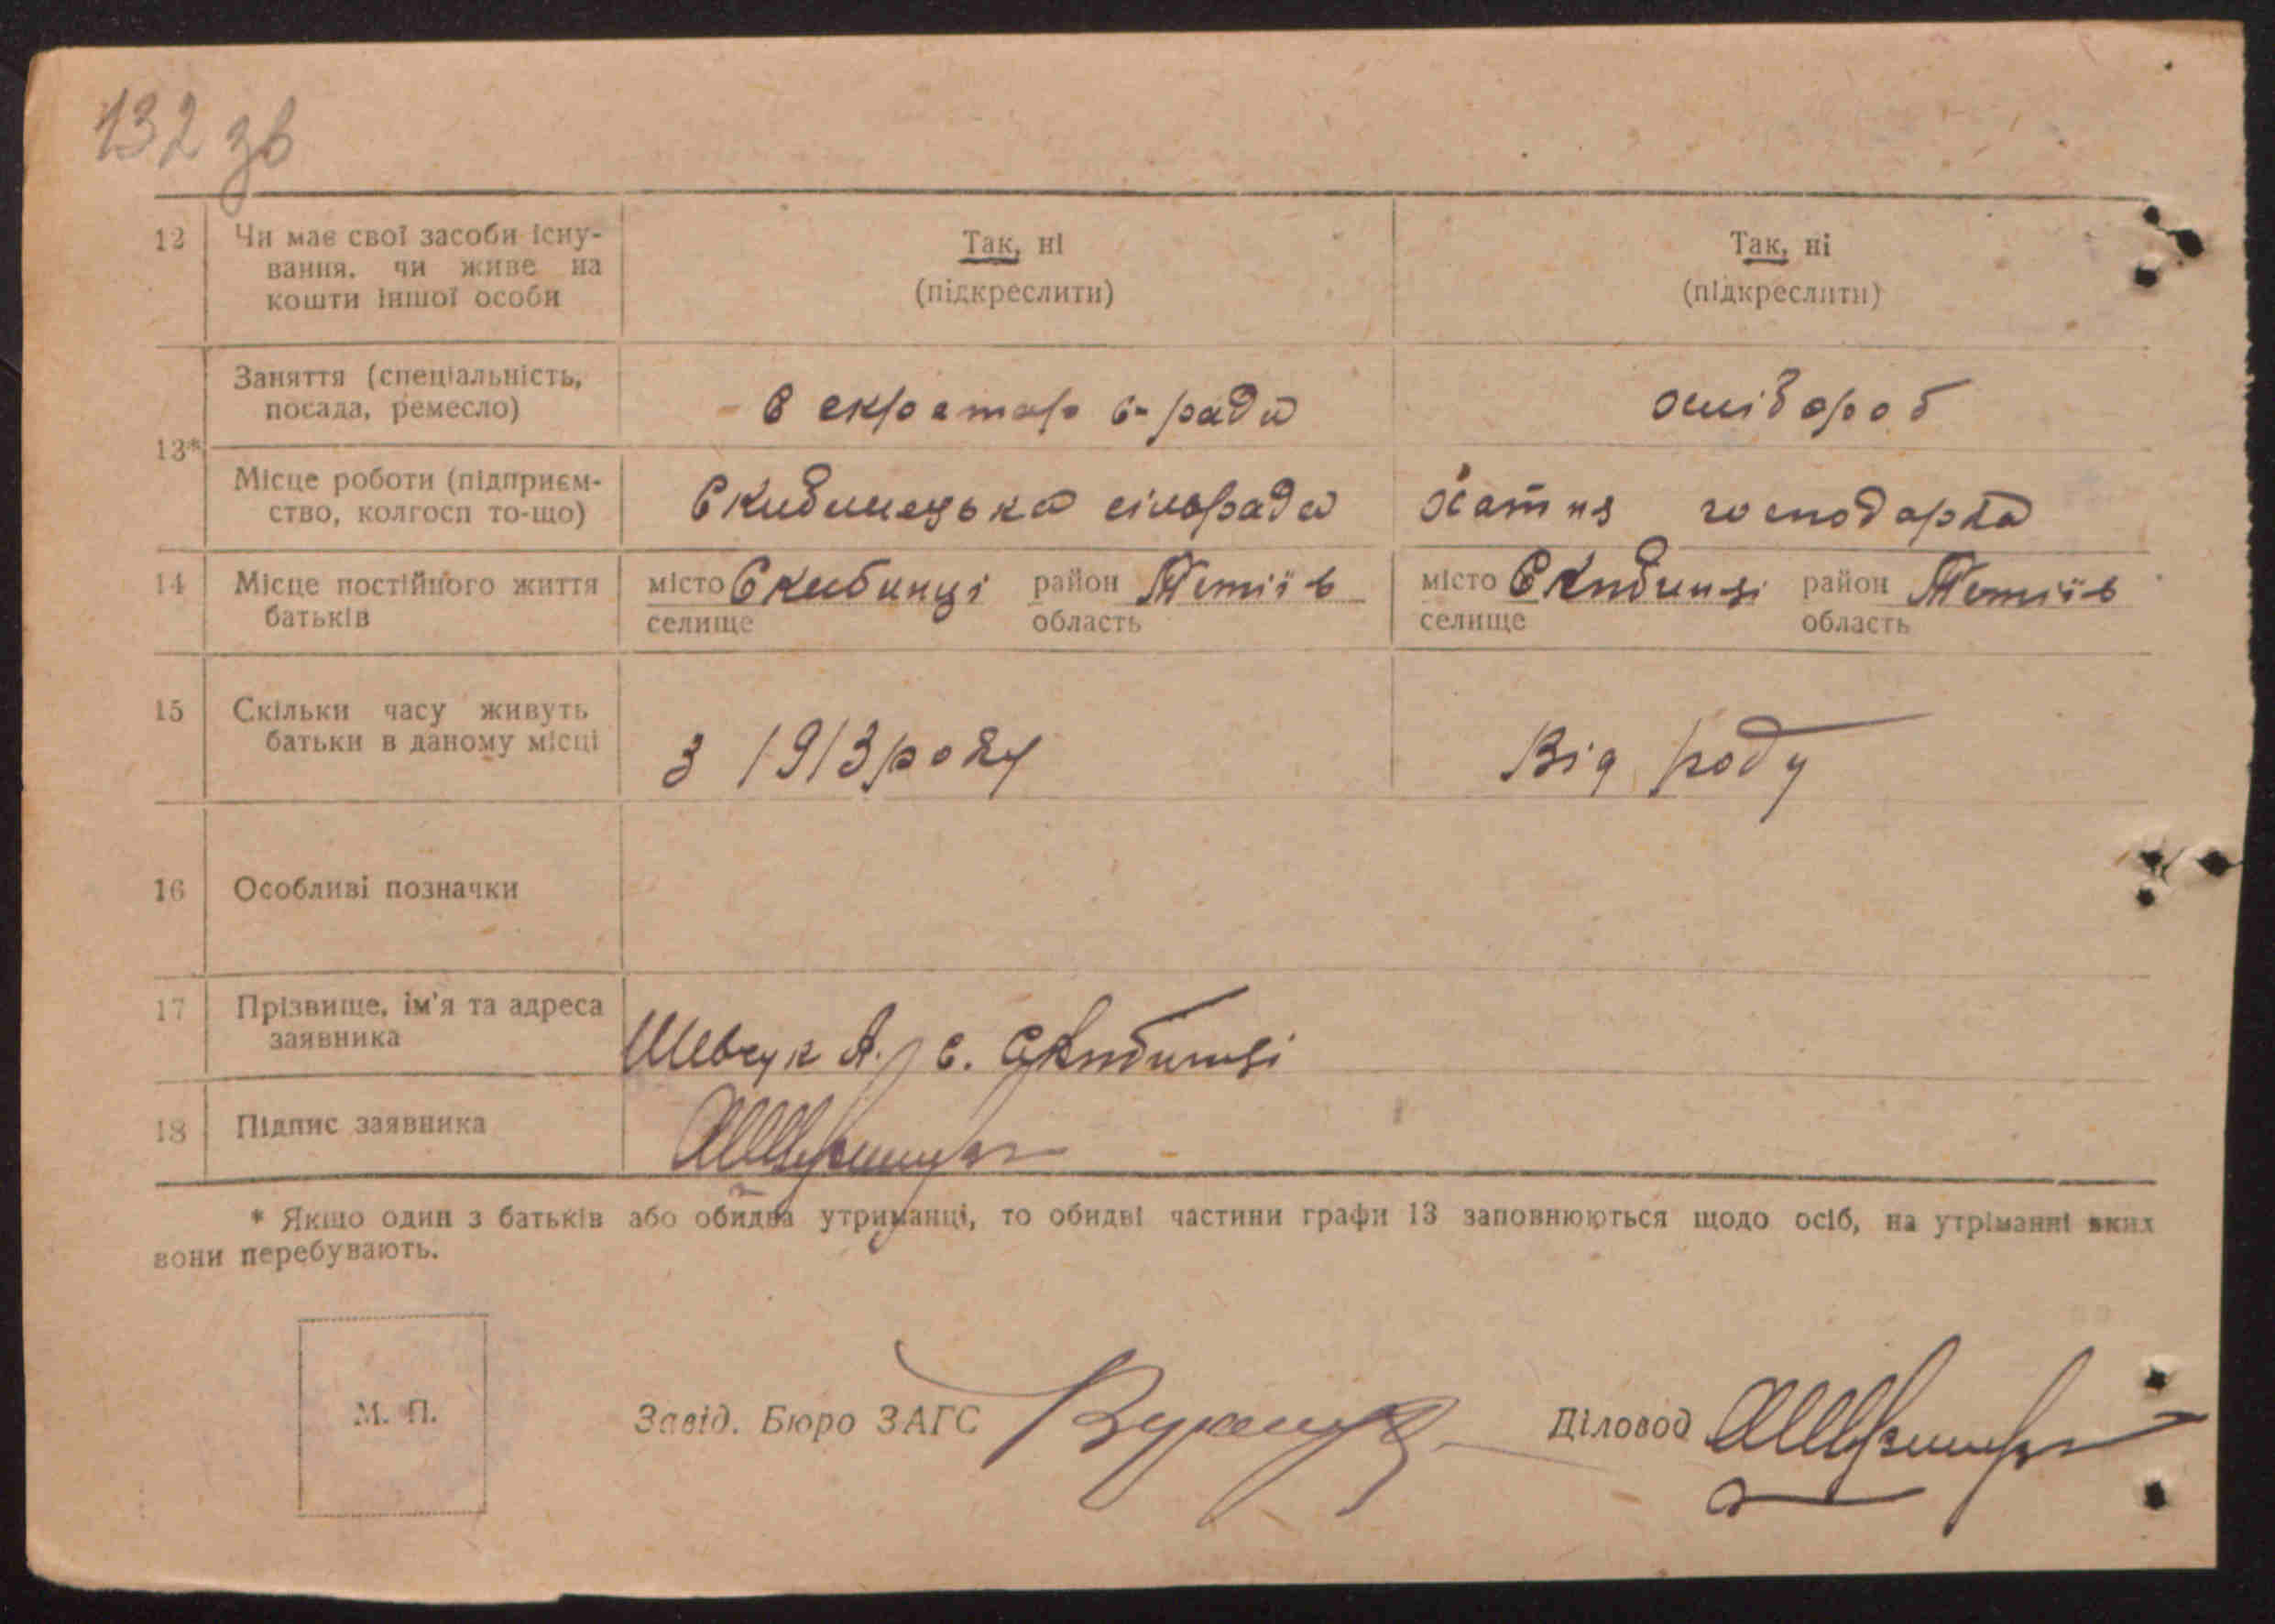 132 зв
12 Чи має свої засоби існу-
вання, чи живе на
кошти іншої особи
Так, ні
(підкреслити)
Так, ні
(підкреслити)
13*
Заняття (спеціальність,
посада, ремесло)
Секретар с-ради
хлібороб
Місце роботи (підприєм-
ство, колгосп то-що)
Скибинецька сільрада
хатня господарка
14 Місце постійного життя
батьків
місто Скибинці район Тетіїв
селище область
місто Скибинці район Тетіїв
селище область
15 Скільки часу живуть
батьки в даному місці
З 1913 року
Від роду
16 Особливі позначки
17 Прізвище, ім'я та адреса
заявника
Шевчук А. с. Скибинці
18 Підпис заявника
* Якшо один з батьків або обидва утриманці, то обидві частини графи 13 заповнюються щодо осіб, на утріманні яких
вони перебувають.
М. П.
Завід. Бюро ЗАГС
Діловод